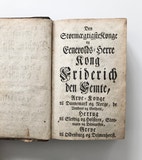 Den
Stormægtigste Konge
og
Eenevolds-Herre
Kong
Friderich
den Femte,
Arve-Konge
til Dannemark og Norge, de
Venders og Gothers,
Hertug
til Slesvig og Holsteen, Stor-
marn og Ditmarsken,
Greve
til Oldenborg og Delmenhorst.